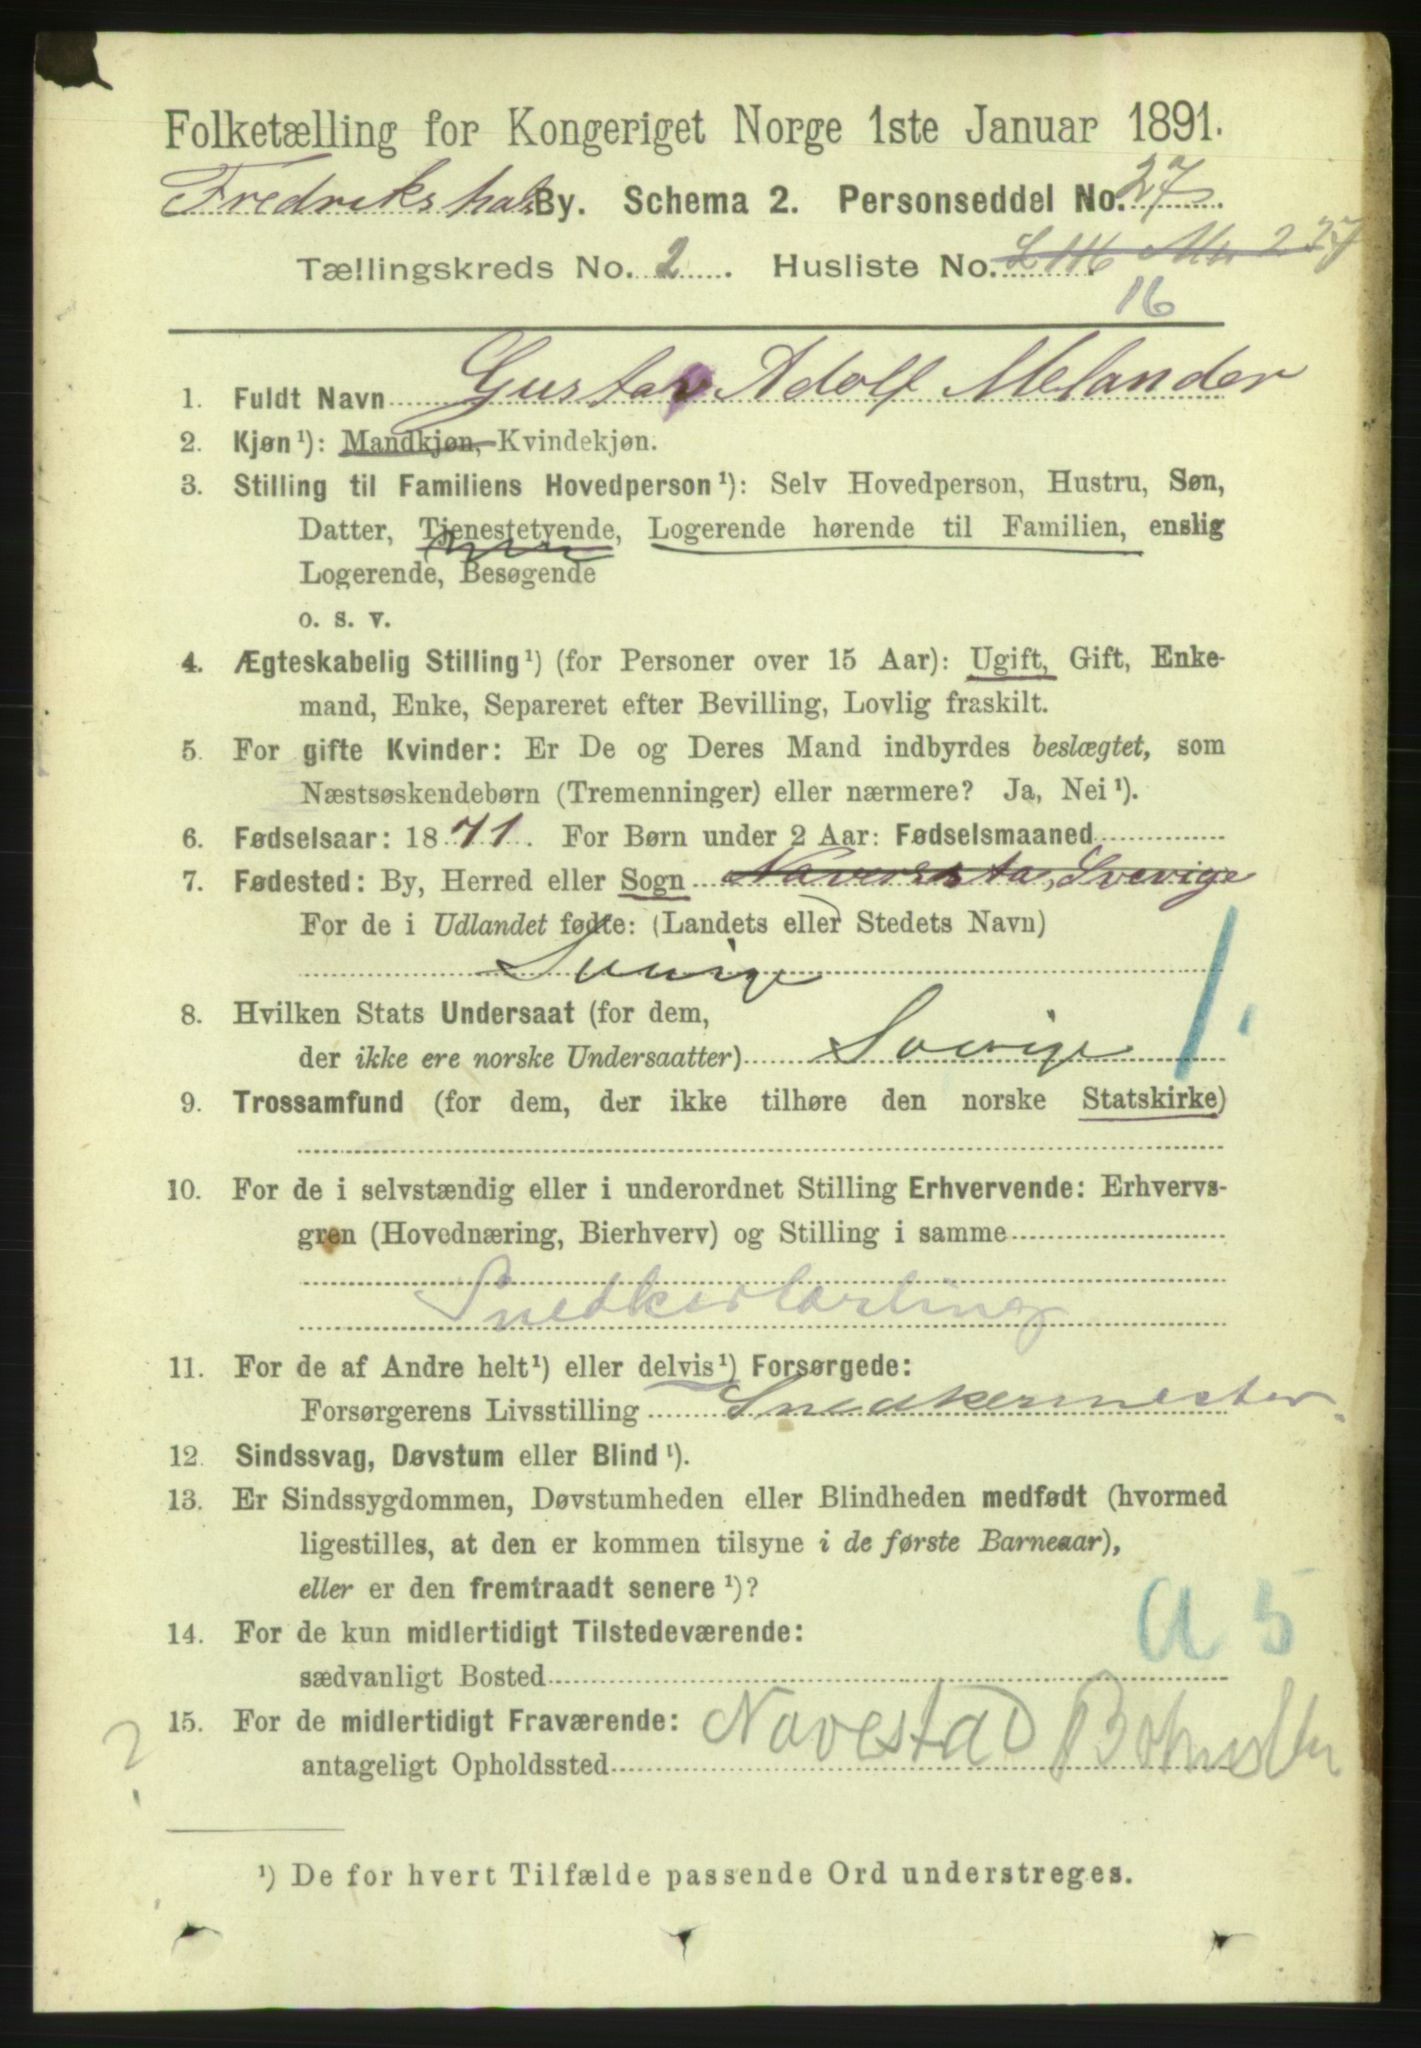 Folketælling for Kongeriget Norge 1ste Januar 1891.
Fredrikshald By. Schema 2. Personseddel No. 27
Tællingskreds No. 2. Husliste No. 227
16
1. Fuldt Navn Gustav Adolf Melander
2. Kjøn ¹): Mandkjøn, Kvindekjøn.
3. Stilling til Familiens Hovedperson ¹): Selv Hovedperson, Hustru, Søn,
Datter, Tjenestetyende, Logerende hørende til Familien, enslig
Logerende, Besøgende
o. s. v.
4. Ægteskabelig Stilling ¹) (for Personer over 15 Aar): Ugift, Gift, Enke-
mand, Enke, Separeret efter Bevilling, Lovlig fraskilt.
5. For gifte Kvinder: Er De og Deres Mand indbyrdes beslægtet, som
Næstsøskendebørn (Tremenninger) eller nærmere? Ja, Nei ¹).
6. Fødselsaar: 1871. For Børn under 2 Aar: Fødselsmaaned
7. Fødested: By, Herred eller Sogn Naversta, Sverige
For de i Udlandet fødte: (Landets eller Stedets Navn)
Sverige
8. Hvilken Stats Undersaat (for dem,
der ikke ere norske Undersaatter) Sverige 1.
9. Trossamfund (for dem, der ikke tilhøre den norske Statskirke)
10. For de i selvstændig eller i underordnet Stilling Erhvervende: Erhvervs-
gren (Hovednæring, Bierhverv) og Stilling i samme
Snedkerlærling
11. For de af Andre helt ¹) eller delvis ¹) Forsørgede:
Forsørgerens Livsstilling Snedkermester.
12. Sindssvag, Døvstum eller Blind ¹).
13. Er Sindssygdommen, Døvstumheden eller Blindheden medfødt (hvormed
ligestilles, at den er kommen tilsyne i de første Barneaar),
eller er den fremtraadt senere ¹)?
a 5
14. For de kun midlertidigt Tilstedeværende:
sædvanligt Bosted
? 15. For de midlertidigt Fraværende: Navestad
antageligt Opholdssted
¹) De for hvert Tilfælde passende Ord understreges.